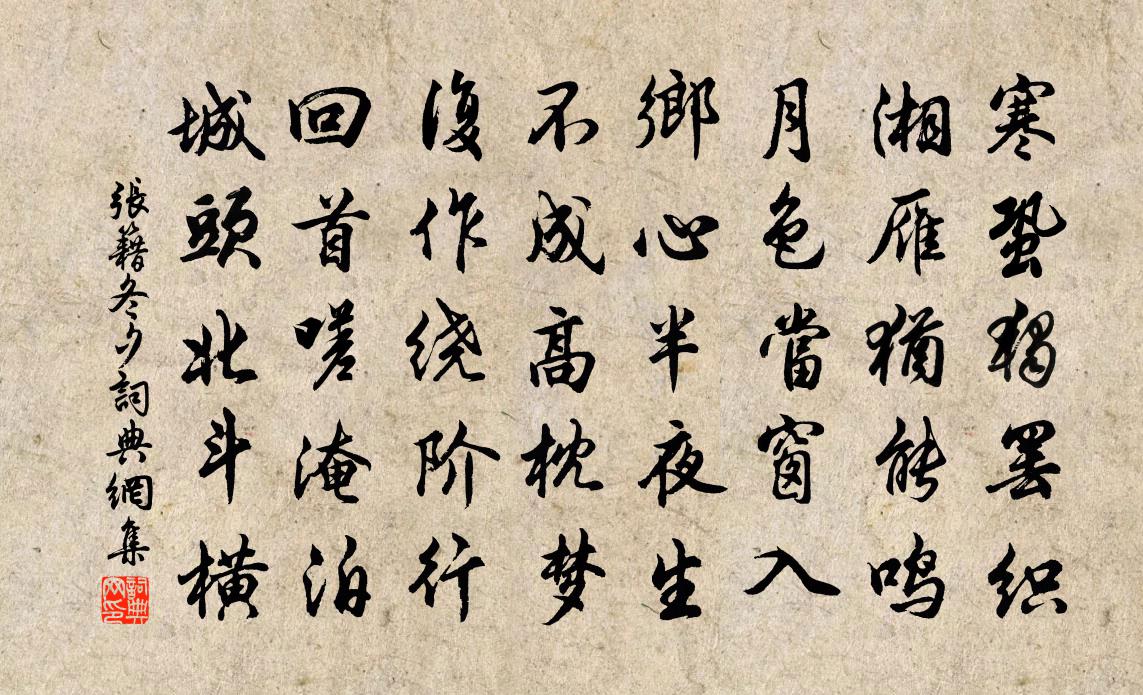 寒蛩独罢织
湘雁猶能鸣
月色當窗入
鄉心半夜生
不成高枕梦
復作绕阶行
回首嗟淹泊
城頭北斗横
張籍冬夕詞典網集
詞典网印